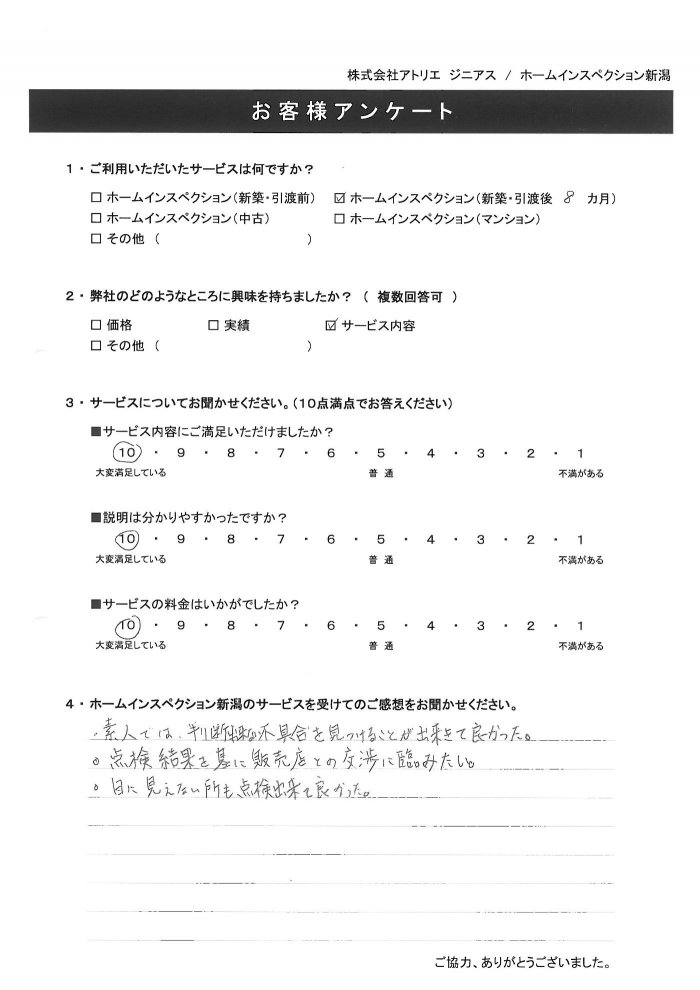 株式会社アトリエ ジニアス / ホームインスペクション新潟
お客様アンケート
1・ご利用いただいたサービスは何ですか？
□ ホームインスペクション（新築・引渡前） ☑ ホームインスペクション（新築・引渡後 8 カ月）
□ ホームインスペクション（中古） □ ホームインスペクション（マンション）
□ その他（ ）
2・弊社のどのようなところに興味を持ちましたか？（ 複数回答可 ）
□ 価格 □ 実績 ☑ サービス内容
□ その他（ ）
3・サービスについてお聞かせください。（10点満点でお答えください）
■サービス内容にご満足いただけましたか？
10 ・ 9 ・ 8 ・ 7 ・ 6 ・ 5 ・ 4 ・ 3 ・ 2 ・ 1
大変満足している 普 通 不満がある
■説明は分かりやすかったですか？
10 ・ 9 ・ 8 ・ 7 ・ 6 ・ 5 ・ 4 ・ 3 ・ 2 ・ 1
大変満足している 普 通 不満がある
■サービスの料金はいかがでしたか？
10 ・ 9 ・ 8 ・ 7 ・ 6 ・ 5 ・ 4 ・ 3 ・ 2 ・ 1
大変満足している 普 通 不満がある
4・ホームインスペクション新潟のサービスを受けてのご感想をお聞かせください。
・素人では、判断困難な不具合を見つけることが出来て良かった。
○ 点検結果を基に販売店との交渉に臨みたい。
○ 目に見えない所も点検出来て良かった。
ご協力、ありがとうございました。